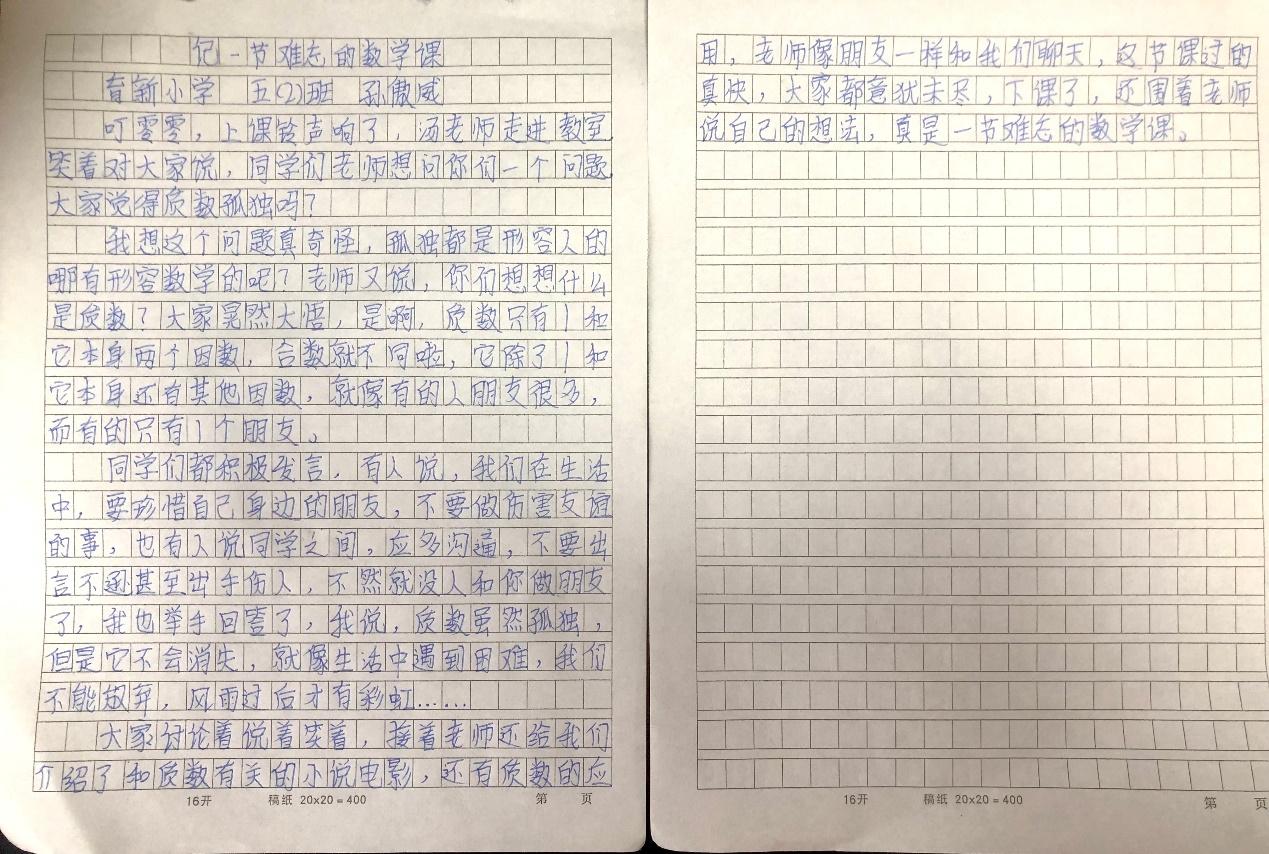 记一节难忘的数学课
育新小学 五(2)班 孙傲威
叮零零，上课铃声响了，汤老师走进教室，
笑着对大家说，同学们老师想问你们一个问题，
大家说得质数孤独吗？
我想这个问题真奇怪，孤独都是形容人的
哪有形容数学的呢？老师又说，你们想想什么
是质数？大家晃然大悟，是啊，质数只有1和
它本身两个因数，合数就不同啦，它除了1和
它本身还有其他因数，就像有的人朋友很多，
而有的只有1个朋友。
同学们都积极发言，有人说，我们在生活
中，要珍惜自己身边的朋友，不要做伤害友谊
的事，也有人说同学之间，应多沟通，不要出
言不逊甚至出手伤人，不然就没人和你做朋友
了，我也举手回答了，我说，质数虽然孤独，
但是它不会消失，就像生活中遇到困难，我们
不能放弃，风雨过后才有彩虹……
大家讨论着说着笑着，接着老师还给我们
介绍了和质数有关的小说电影，还有质数的应
16开 稿纸 20x20=400 第 页
用，老师像朋友一样和我们聊天，这节课过的
真快，大家都意犹未尽，下课了，还围着老师
说自己的想法，真是一节难忘的数学课。
16开 稿纸 20x20=400 第 页